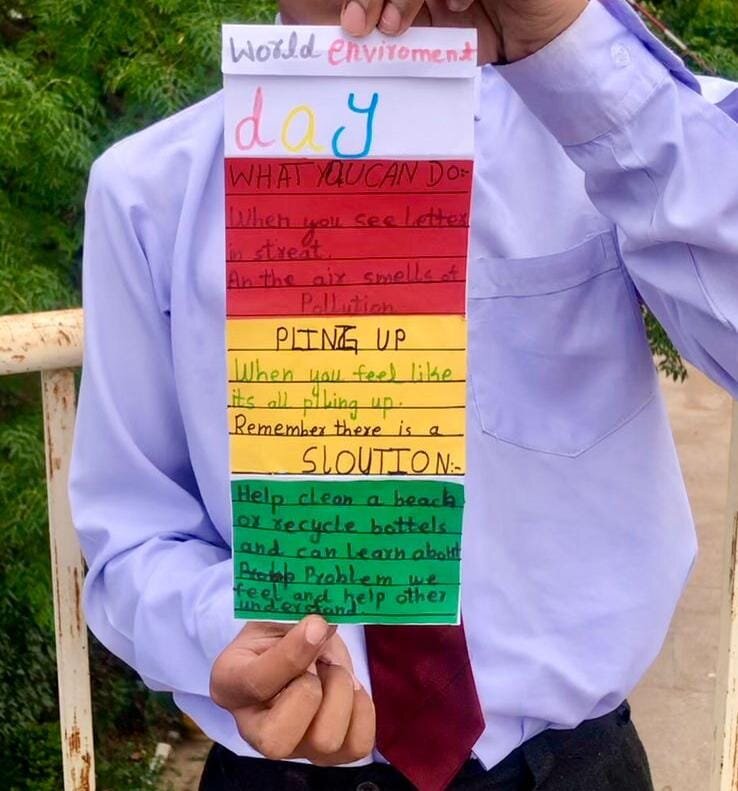 World enviroment
day
WHAT YOU CAN DO:-
When you see letter
in streat.
An the air smells of
Pollution
PLING UP
When you feel like
its all piling up.
Remember there is a
SLOUTION:-
Help clean a beach
or recycle bottels
and can learn about
Problem we
feel and help other
understand.